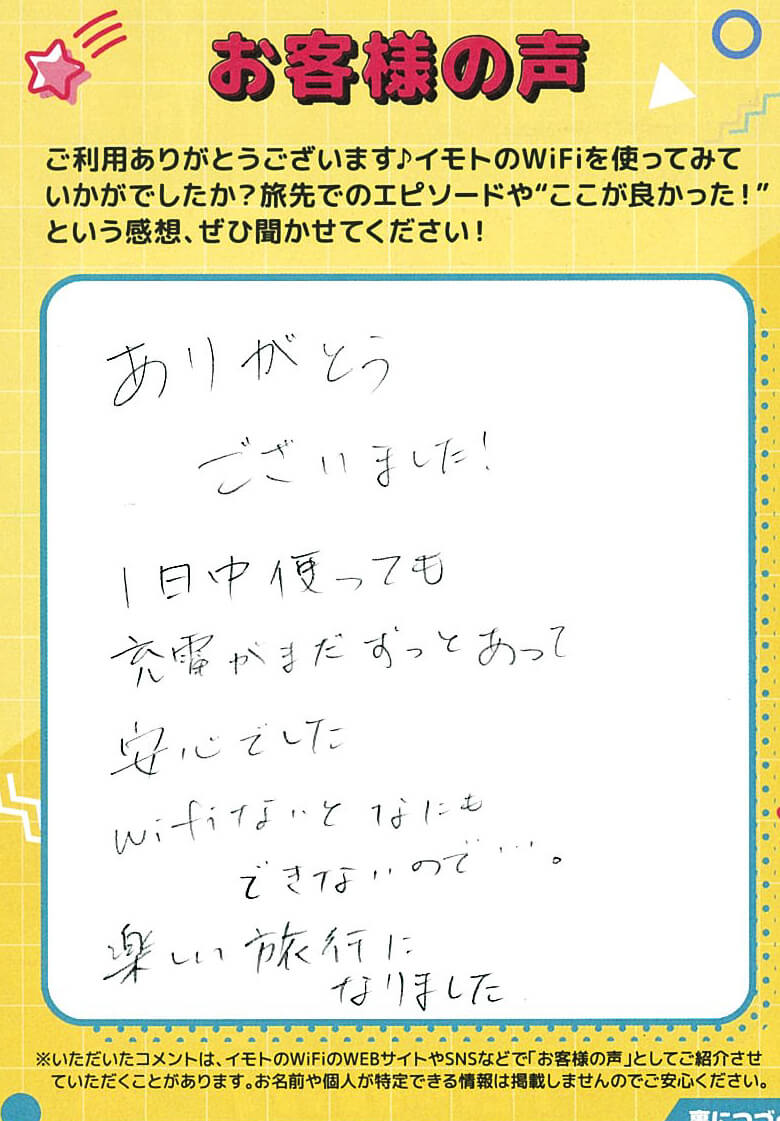 お客様の声
ご利用ありがとうございます♪イモトのWiFiを使ってみて
いかがでしたか?旅先でのエピソードや“ここが良かった!”
という感想、ぜひ聞かせてください!
ありがとう
ございました!
1日中使っても
充電がまだずっとあって
安心でした
wifiないとなにも
できないので…。
楽しい旅行に
なりました
※いただいたコメントは、イモトのWiFiのWEBサイトやSNSなどで「お客様の声」としてご紹介させ
ていただくことがあります。お名前や個人が特定できる情報は掲載しませんのでご安心ください。
裏につづく